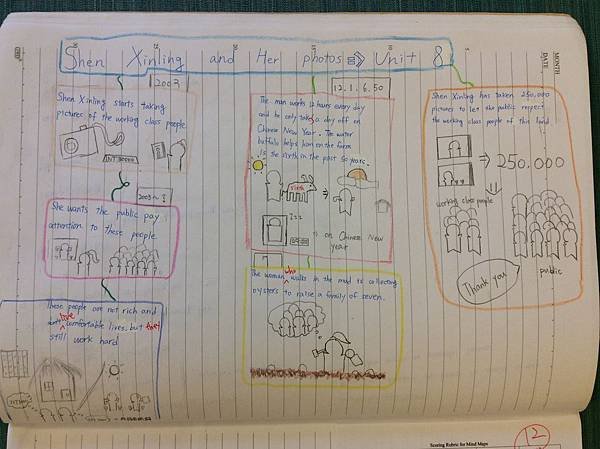 Shen Xinling and Her photos ⇒ Unit 8
MONTH
DATE
2003
Shen Xinling starts taking
pictures of the working class people.
2003~
She wants the public pay
attention to these people.
These people are not rich and
live
comfortable lives, but they
still work hard
12.1.6.50
The man works 12 hours every day
and he only takes a day off on
Chinese New Year. The water
buffalo helps him on the farm
is the sixth in the past 50 years.
sixth
on Chinese New
year
who
The woman walks in the mud is collecting
oysters to raise a family of seven.
Shen Xinling has taken 250,000
pictures to let the public respect
the working class people of this land
⇒ 250.000
working class people
public
Thank you
12
Scoring Rubric for Mind Maps